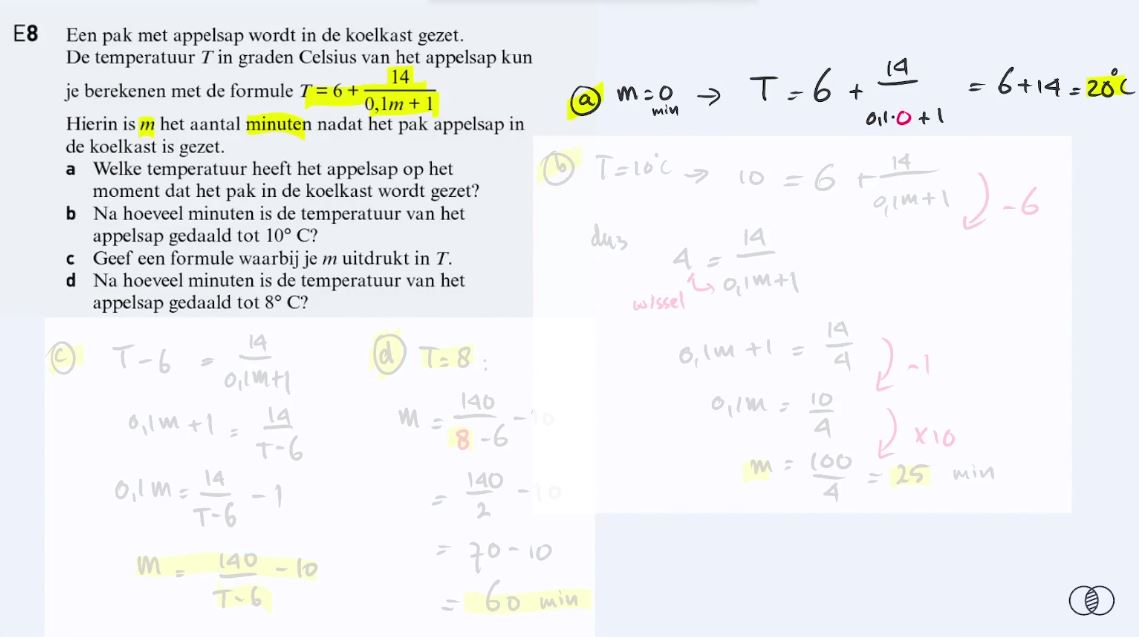 E8 Een pak met appelsap wordt in de koelkast gezet.
De temperatuur T in graden Celsius van het appelsap kun
je berekenen met de formule T = 6 + 14/(0,1m + 1)
Hierin is m het aantal minuten nadat het pak appelsap in
de koelkast is gezet.
a Welke temperatuur heeft het appelsap op het
moment dat het pak in de koelkast wordt gezet?
b Na hoeveel minuten is de temperatuur van het
appelsap gedaald tot 10° C?
c Geef een formule waarbij je m uitdrukt in T.
d Na hoeveel minuten is de temperatuur van het
appelsap gedaald tot 8° C?
a m=0 min → T = 6 + 14/(0,1·0 + 1) = 6+14 = 20°C
b T=10°C → 10 = 6 + 14/(0,1m+1) -6
dus 4 = 14/(0,1m+1)
wissel
0,1m + 1 = 14/4 -1
0,1m = 10/4 x10
m = 100/4 = 25 min
c T-6 = 14/(0,1m+1)
0,1m + 1 = 14/(T-6)
0,1m = 14/(T-6) - 1
m = 140/(T-6) - 10
d T=8:
m = 140/(8-6) - 10
= 140/2 - 10
= 70 - 10
= 60 min